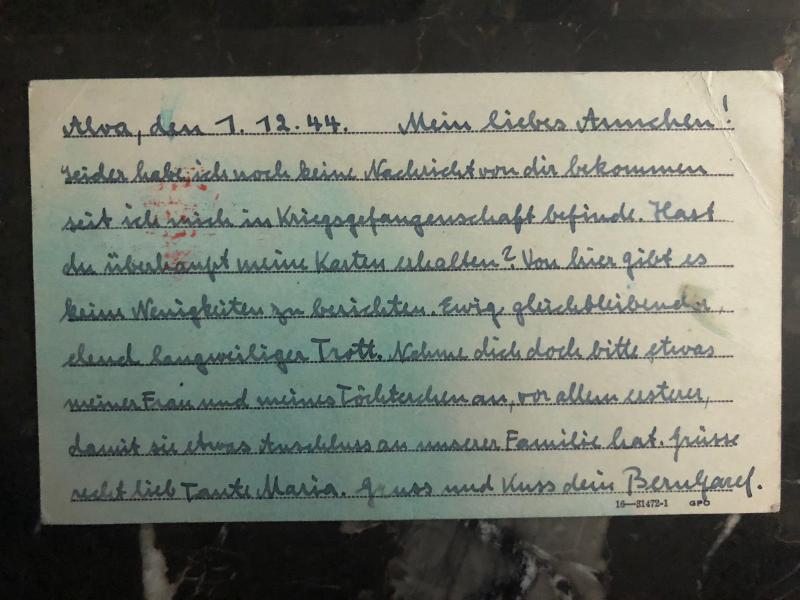 Alva, den 1. 12. 44. Mein liebes Annchen!
Leider habe ich noch keine Nachricht von dir bekommen
seit ich mich in Kriegsgefangenschaft befinde. Hast
du überhaupt meine Karten erhalten? Von hier gibt es
keine Neuigkeiten zu berichten. Ewig gleichbleibender,
elend langweiliger Trott. Nehme dich doch bitte etwas
meiner Frau und meines Töchterchen an, vor allem ersterer,
damit sie etwas Anschluss an unserer Familie hat. Grüsse
recht lieb Tante Maria. Gruss und Kuss dein Bernhard.
16—31472-1 GPO